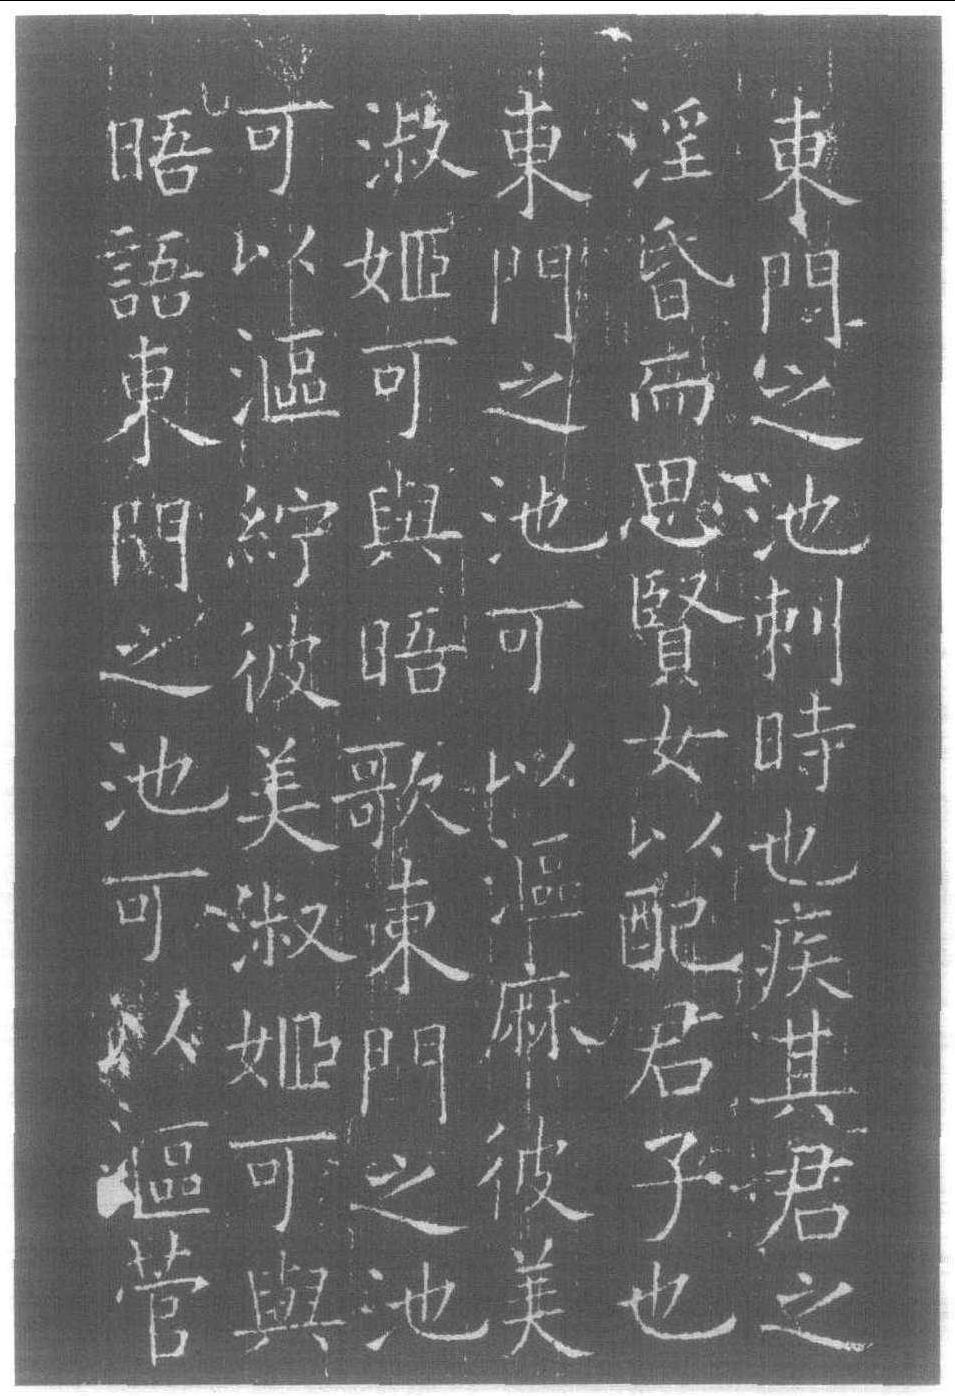 東門之池刺時也疾其君之
淫昏而思賢女以配君子也
東門之池可以漚麻彼美
淑姬可與晤歌東門之池
可以漚紵彼美淑姬可與
晤語東門之池可以漚菅